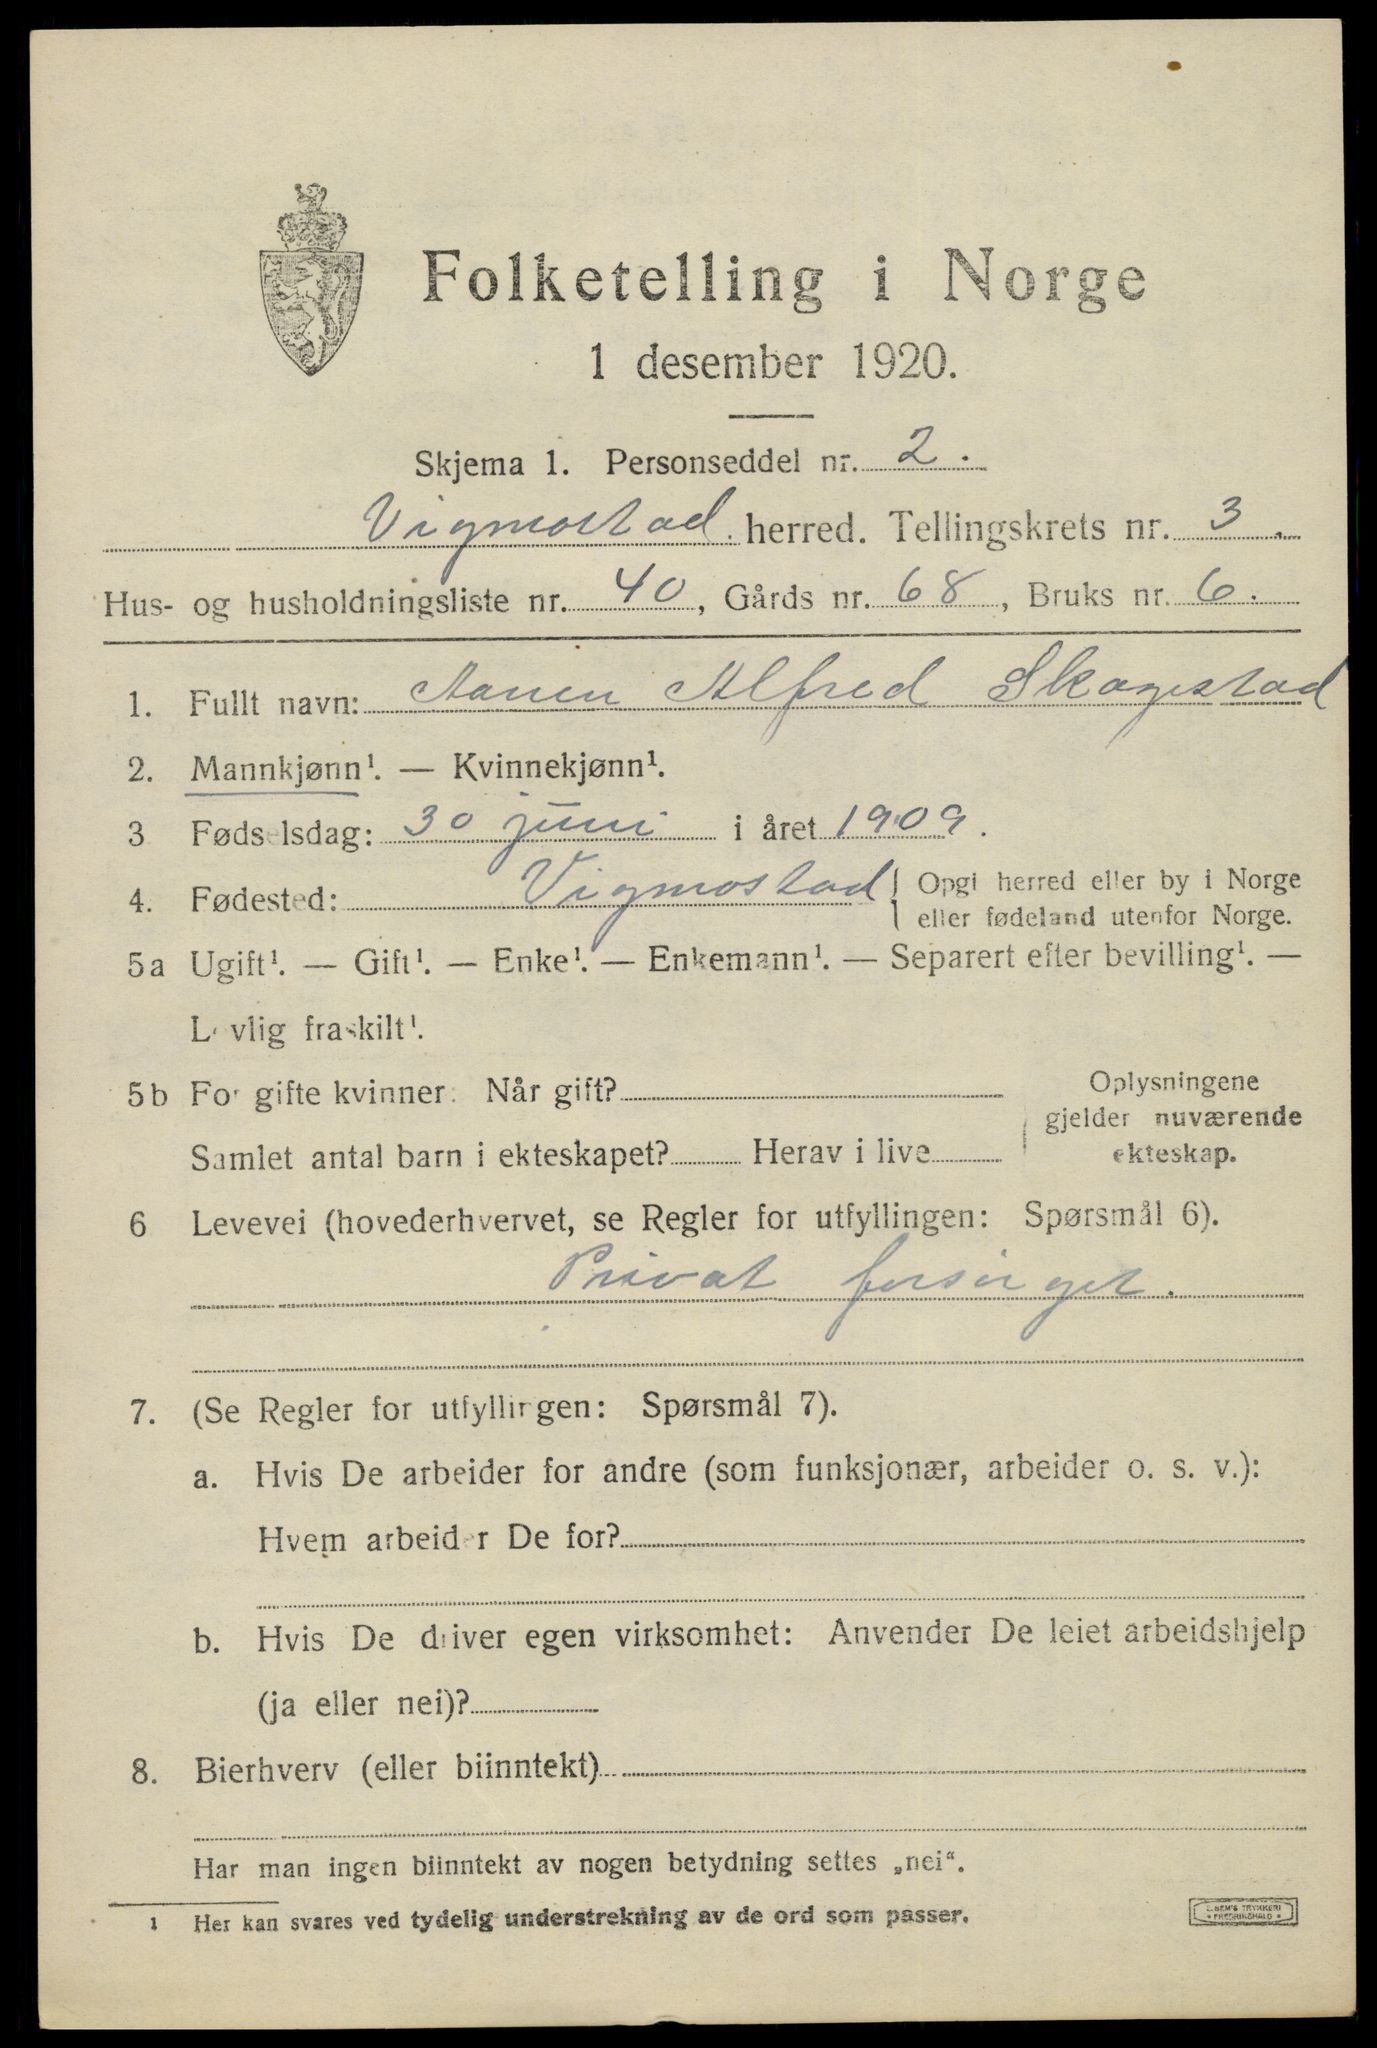 Folketelling i Norge
1 desember 1920.
Skjema 1. Personseddel nr. 2.
Vigmostad herred. Tellingskrets nr. 3.
Hus- og husholdningsliste nr. 40, Gårds nr. 68, Bruks nr. 6.
1. Fullt navn: Aanen Alfred Skagestad
2. Mannkjønn¹. — Kvinnekjønn¹.
3 Fødselsdag: 30 juni i året 1909.
4. Fødested: Vigmostad { Opgi herred eller by i Norge
eller fødeland utenfor Norge.
5a Ugift¹. — Gift¹. — Enke¹. — Enkemann¹. — Separert efter bevilling¹. —
Lovlig fraskilt¹.
5b For gifte kvinner: Når gift?
Samlet antal barn i ekteskapet? Herav i live
Oplysningene
gjelder nuværende
ekteskap.
6 Levevei (hovederhvervet, se Regler for utfyllingen: Spørsmål 6).
Privat forsørget.
7. (Se Regler for utfyllingen: Spørsmål 7).
a. Hvis De arbeider for andre (som funksjonær, arbeider o. s. v.):
Hvem arbeider De for?
b. Hvis De driver egen virksomhet: Anvender De leiet arbeidshjelp
(ja eller nei)?
8. Bierhverv (eller biinntekt)
Har man ingen biinntekt av nogen betydning settes „nei“.
1 Her kan svares ved tydelig understrekning av de ord som passer.
E. SEM'S TRYKKERI
• FREDRIKSHALD •